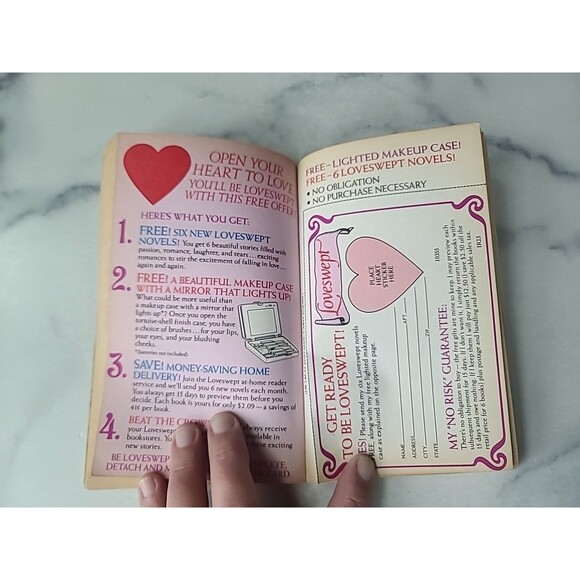 OPEN YOUR
HEART TO LOVE
YOU'LL BE LOVESWEPT
WITH THIS FREE OFFER
HERE'S WHAT YOU GET:
1. FREE! SIX NEW LOVESWEPT
NOVELS! You get 6 beautiful stories filled
with passion, romance, laughter, and tears....exciting
romances to stir the excitement of falling in love....
again and again.
2. FREE! A BEAUTIFUL MAKEUP CASE
WITH A MIRROR THAT LIGHTS UP!
What could be more useful than
a makeup case with a mirror that
lights up*? Once you open the
tortoise-shell finish case, you have
a choice of brushes...for your lips,
your eyes, and your blushing
cheeks.
*(batteries not included)
3. SAVE! MONEY-SAVING HOME
DELIVERY! Join the Loveswept at-home reader
service and we'll send you 6 new novels each month.
You always get 15 days to preview them before you
decide. Each book is yours for only $2.09 — a savings of
41¢ per book.
4. BEAT THE
your Loveswept always receive
bookstores. in
new stories. exciting
BE LOVESWEPT
DETACH AND CARD.
FREE–LIGHTED MAKEUP CASE!
FREE–6 LOVESWEPT NOVELS!
• NO OBLIGATION
• NO PURCHASE NECESSARY
Loveswept
PLACE
HEART
STICKER
HERE
GET READY
TO BE LOVESWEPT!
YES! Please send my six Loveswept novels
FREE, along with my free lighted makeup
case as explained on the opposite page.
NAME
ADDRESS APT.
CITY
STATE ZIP
MY "NO RISK" GUARANTEE:
There's no obligation to buy — the free gifts are mine to keep. I may preview each
subsequent shipment for 15 days. If I don't want it, I simply return the books within
15 days and owe nothing. If I keep them I will pay just $12.50 (I save $2.50 off the
retail price for 6 books) plus postage and handling and any applicable sales tax.
10355 HK3